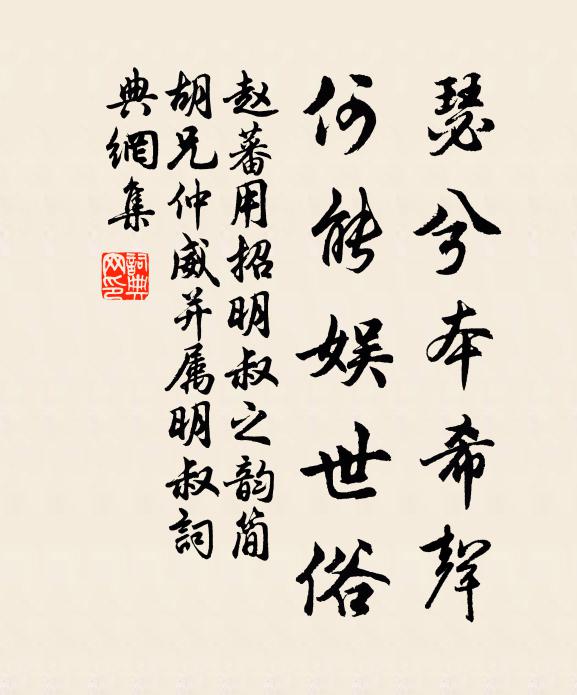 瑟兮本希聲
何能娛世俗
赵蕃用招明叔之韵简
胡兄仲威并属明叔詞
典網集
詞典网印